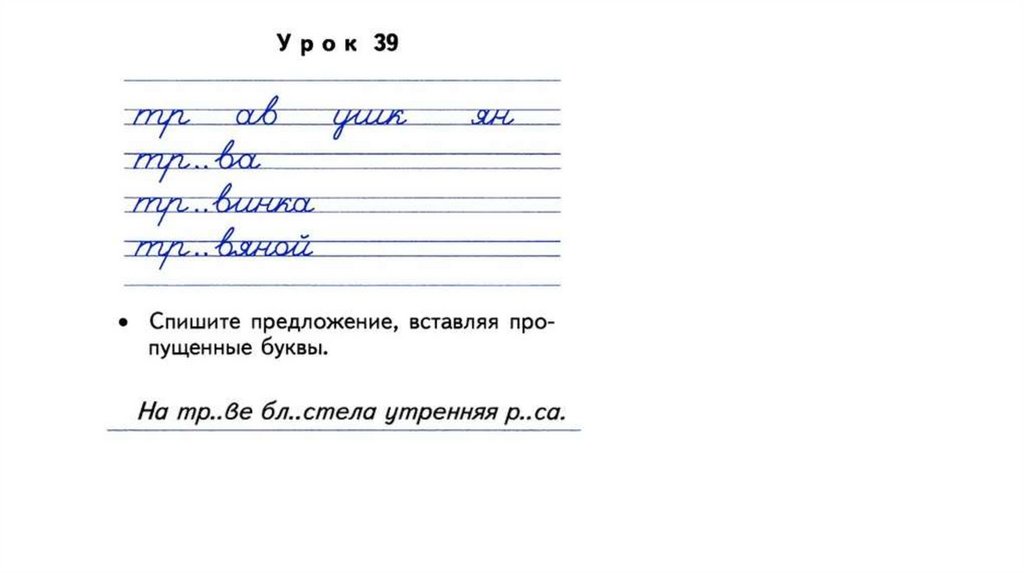 Урок 39
тр ав ушк ян
тр..ва
тр..винка
тр..вяной
• Спишите предложение, вставляя про-
пущенные буквы.
На тр..ве бл..стела утренняя р..са.